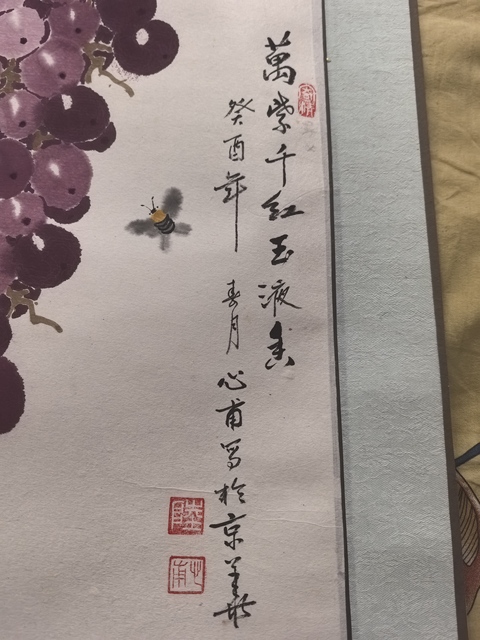 萬紫千紅玉液香
癸酉年 春月 心甫写於京
陸
心甫